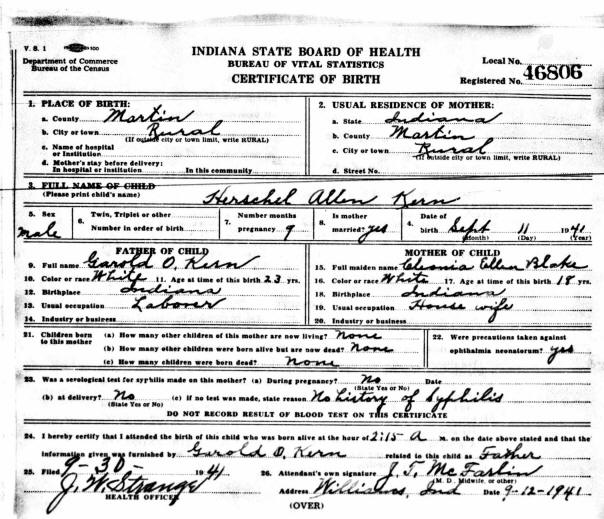 V. S. 1 100
Department of Commerce
Bureau of the Census
INDIANA STATE BOARD OF HEALTH
BUREAU OF VITAL STATISTICS
CERTIFICATE OF BIRTH
Local No.
Registered No. 46806
1. PLACE OF BIRTH:
a. County Martin
b. City or town Rural
(If outside city or town limit, write RURAL)
c. Name of hospital
or Institution
d. Mother's stay before delivery:
In hospital or institution In this community
2. USUAL RESIDENCE OF MOTHER:
a. State Indiana
b. County Martin
c. City or town Rural
(If outside city or town limit, write RURAL)
d. Street No.
3. FULL NAME OF CHILD
(Please print child's name) Herschel Allen Kern
5. Sex male
6. Twin, Triplet or other
Number in order of birth
7. Number months
pregnancy 9
8. Is mother
married? yes
4. Date of
birth Sept 11 1941
(Month) (Day) (Year)
FATHER OF CHILD
9. Full name Garold O. Kern
10. Color or race White 11. Age at time of this birth 23 yrs.
12. Birthplace Indiana
13. Usual occupation Laborer
14. Industry or business
MOTHER OF CHILD
15. Full maiden name Cleonia Ellen Blake
16. Color or race White 17. Age at time of this birth 18 yrs.
18. Birthplace Indiana
19. Usual occupation House wife
20. Industry or business
21. Children born
to this mother
(a) How many other children of this mother are now living? None
(b) How many other children were born alive but are now dead? None
(c) How many children were born dead? None
22. Were precautions taken against
ophthalmia neonatorum? yes
23. Was a serological test for syphilis made on this mother? (a) During pregnancy? No Date
(State Yes or No)
(b) at delivery? No (c) if no test was made, state reason No history of Syphilis
(State Yes or No)
DO NOT RECORD RESULT OF BLOOD TEST ON THIS CERTIFICATE
24. I hereby certify that I attended the birth of this child who was born alive at the hour of 2:15 A M. on the date above stated and that the
information given was furnished by Gerold O. Kern related to this child as Father
25. Filed 9-30- 1941
J. W. Strange
HEALTH OFFICER
26. Attendant's own signature J. T. McFarlin
(M. D., Midwife, or other)
Address Williams, Ind Date 9-12-1941
(OVER)